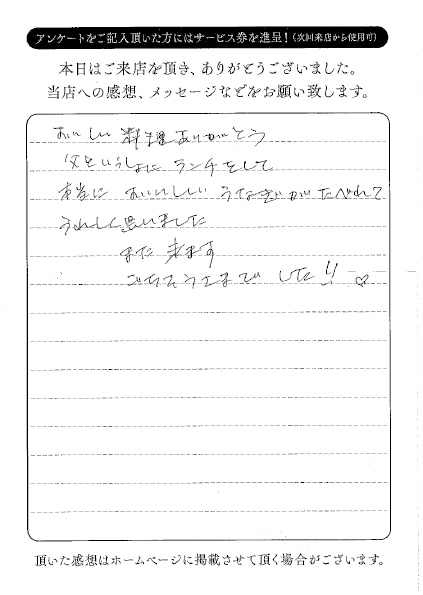 アンケートをご記入頂いた方にはサービス券を進呈！（次回来店から使用可）
本日はご来店を頂き、ありがとうございました。
当店への感想、メッセージなどをお願い致します。
おいしい 料理ありがとう
父といっしょに ランチをして
本当に おいいしい うなぎがたべれて
うれしく思いました
また 来ます
ごちそうさまでした!! ♡
頂いた感想はホームページに掲載させて頂く場合がございます。